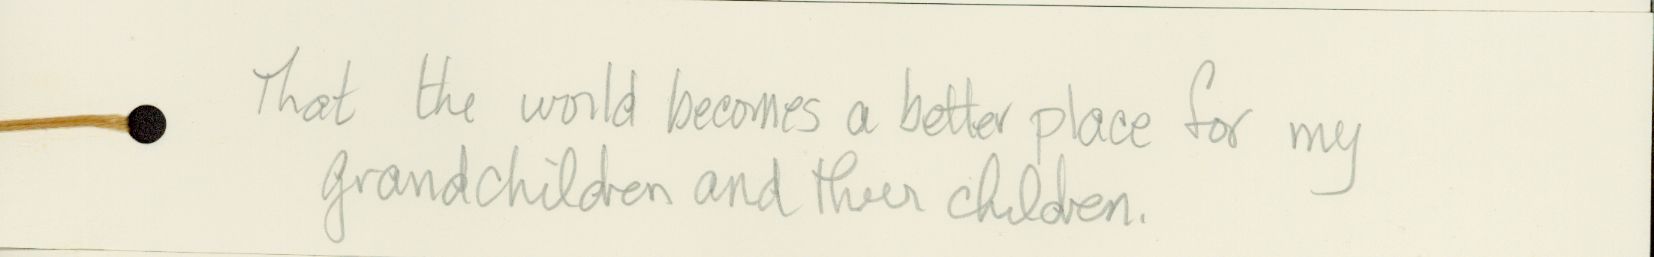 That the world becomes a better place for my
grandchildren and their children.